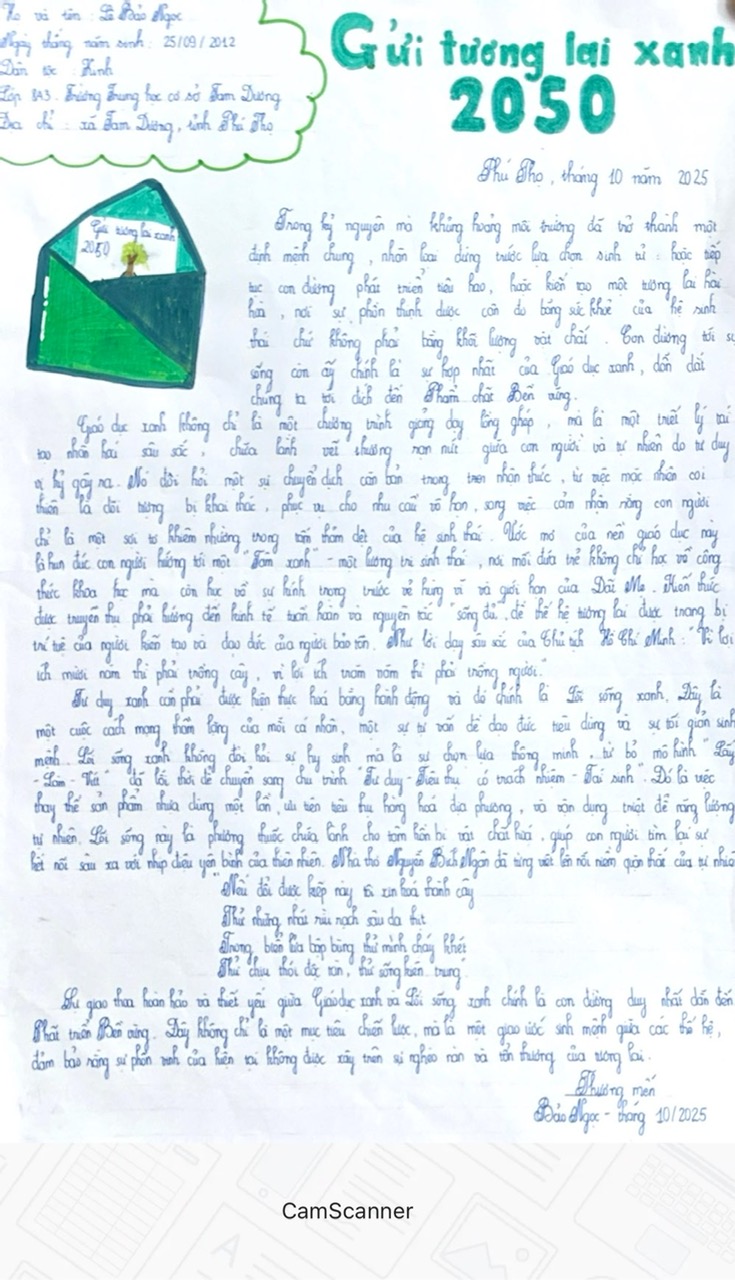 Họ và tên : Lê Bảo Ngọc
Ngày tháng năm sinh : 25/09/2012
Dân tộc : Kinh
Lớp 8A3. Trường Trung học cơ sở Tam Dương
Địa chỉ : xã Tam Dương, tỉnh Phú Thọ
Gửi tương lai xanh
2050
Phú Thọ, tháng 10 năm 2025
Gửi tương lai xanh
2050
Trong kỷ nguyên mà khủng hoảng môi trường đã trở thành một
định mệnh chung, nhân loại đứng trước lựa chọn sinh tử : hoặc tiếp
tục con đường phát triển tiêu hao, hoặc kiến tạo một tương lai hài
hòa, nơi sự phồn thịnh được cân đo bằng sức khoẻ của hệ sinh
thái chứ không phải bằng khối lượng vật chất. Con đường tới sự
sống còn ấy chính là sự hợp nhất của Giáo dục xanh, dẫn dắt
chúng ta tới đích đến Phẩm chất Bền vững.
Giáo dục xanh không chỉ là một chương trình giảng dạy lồng ghép, mà là một triết lý tái
tạo nhân loại sâu sắc, chữa lành vết thương rạn nứt giữa con người và tự nhiên do tư duy
vị kỷ gây ra. Nó đòi hỏi một sự chuyển dịch căn bản trong nhận thức, từ việc mặc nhiên coi
thiên là đối tượng bị khai thác, phục vụ cho nhu cầu vô hạn, sang việc cảm nhận rằng con người
chỉ là một sợi tơ khiêm nhường trong tấm thảm dệt của hệ sinh thái. Ước mơ của nền giáo dục này
là hun đúc con người hướng tới một "Tâm xanh" - một lương tri sinh thái, nơi mỗi đứa trẻ không chỉ học về công
thức khoa học mà còn học về sự kính trọng trước vẻ hùng vĩ và giới hạn của Đất Mẹ. Kiến thức
được truyền thụ phải hướng đến kinh tế tuần hoàn và nguyên tắc "sống đủ", để thế hệ tương lai được trang bị
trí tuệ của người kiến tạo và đạo đức của người bảo tồn. Như lời dạy sâu sắc của Chủ tịch Hồ Chí Minh: "Vì lợi
ích mười năm thì phải trồng cây, vì lợi ích trăm năm thì phải trồng người."
Tư duy xanh cần phải được hiện thực hoá bằng hành động và đó chính là Lối sống xanh. Đây là
một cuộc cách mạng thầm lặng của mỗi cá nhân, một sự tự vấn về đạo đức tiêu dùng và sự tối giản sinh
mệnh. Lối sống xanh không đòi hỏi sự hy sinh mà là sự chọn lựa thông minh, từ bỏ mô hình "Lấy
- Làm - Vứt" đã lỗi thời để chuyển sang chu trình "Tư duy - Tiêu thụ có trách nhiệm - Tái sinh". Đó là việc
thay thế sản phẩm nhựa dùng một lần, ưu tiên tiêu thụ hàng hoá địa phương, và tận dụng triệt để năng lượng
tự nhiên. Lối sống này là phương thuốc chữa lành cho tâm hồn bị vật chất hoá, giúp con người tìm lại sự
kết nối sâu xa với nhịp điệu yên bình của thiên nhiên. Nhà thơ Nguyễn Bích Ngân đã từng viết lên nỗi niềm quặn thắt của tự nhiên
"Nếu đổi được kiếp này tôi xin hoá thành cây
Thử những nhát rìu rạch sâu da thịt
Trong biển lửa bập bùng thử mình cháy khét
Thử chịu thói đời rồi, thử sống kiên trung"
Sự giao thoa hoàn hảo và thiết yếu giữa Giáo dục xanh và Lối sống xanh chính là con đường duy nhất dẫn đến
Phát triển Bền vững. Đây không chỉ là một mục tiêu chiến lược, mà là một giao ước sinh mệnh giữa các thế hệ,
đảm bảo rằng sự phồn vinh của hiện tại không được xây trên sự nghèo nàn và tổn thương của tương lai.
Thương mến
Bảo Ngọc - tháng 10/2025
CamScanner